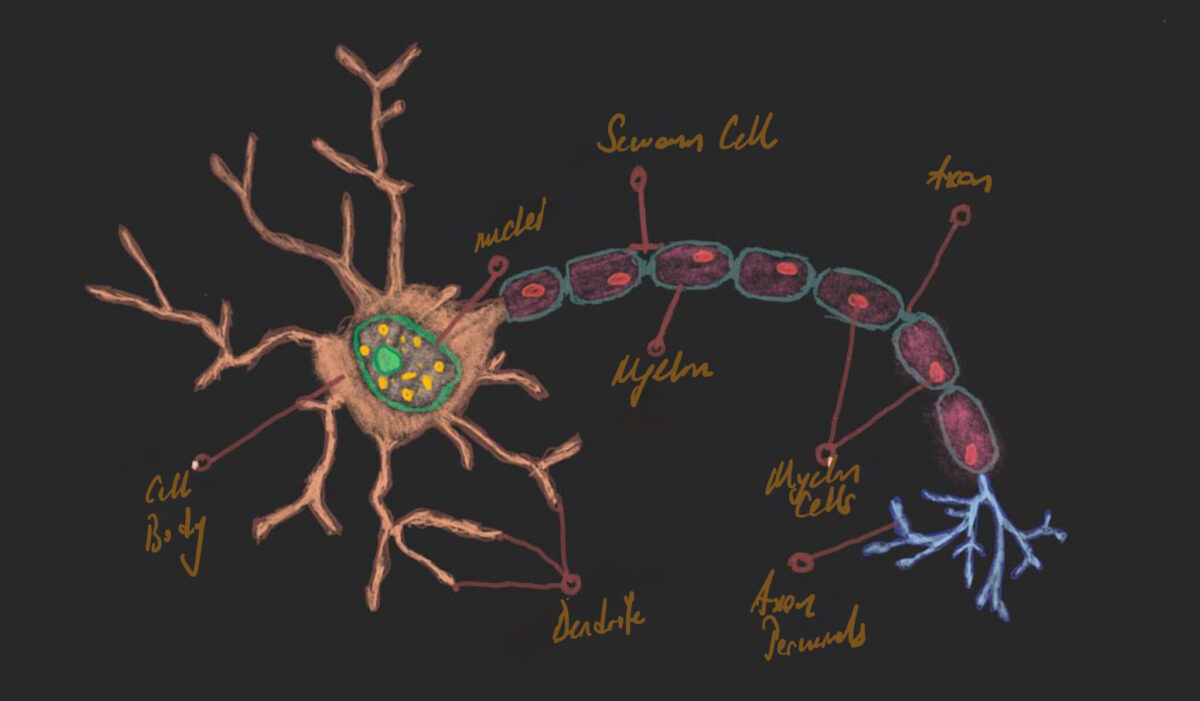 Scwann Cell
Axon
nuclei
Myelin
Cell
Body
Myelin
Cells
Dendrite
Axon
Terminals